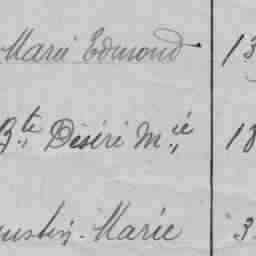 Marie Edmond 13
Bte Désiré Mie 18
ustin-Marie 3